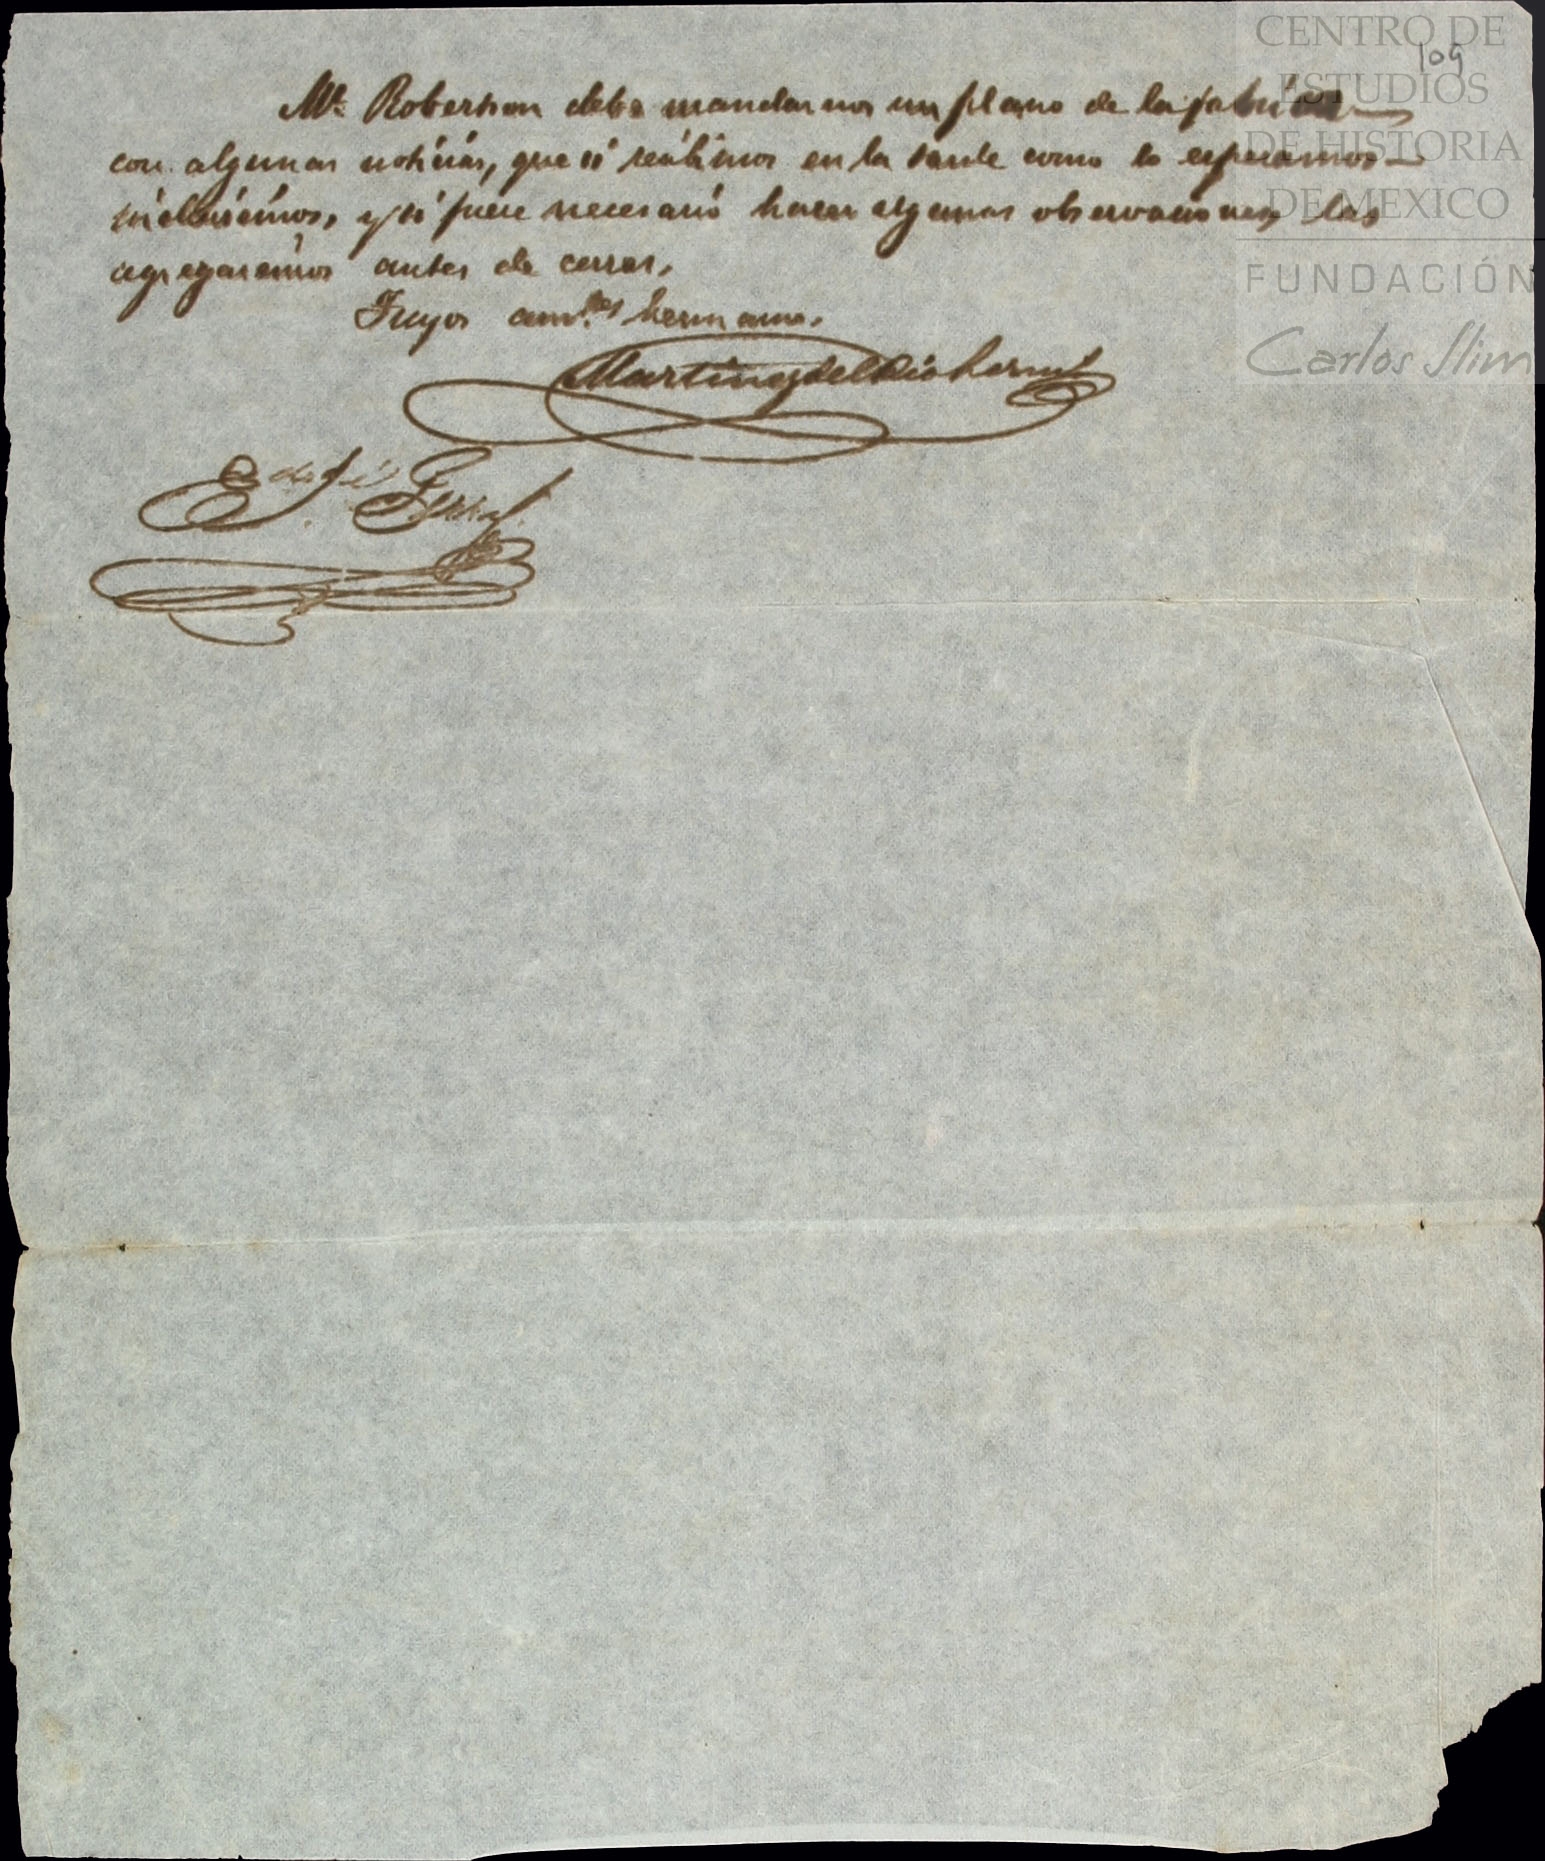 109
Mr. Robertson debe mandarnos un plano de la fabrica
con algunas noticias, que si recibimos en la tarde como lo esperamos
incluirémos, y si fuere necesario hacer algunas observaciones, las
agregarémos antes de cerrar.
Tuyos am.tes hermanos.
Martinez del Rio herms
CENTRO DE
ESTUDIOS
DE HISTORIA
DE MEXICO
FUNDACIÓN
Carlos Slim